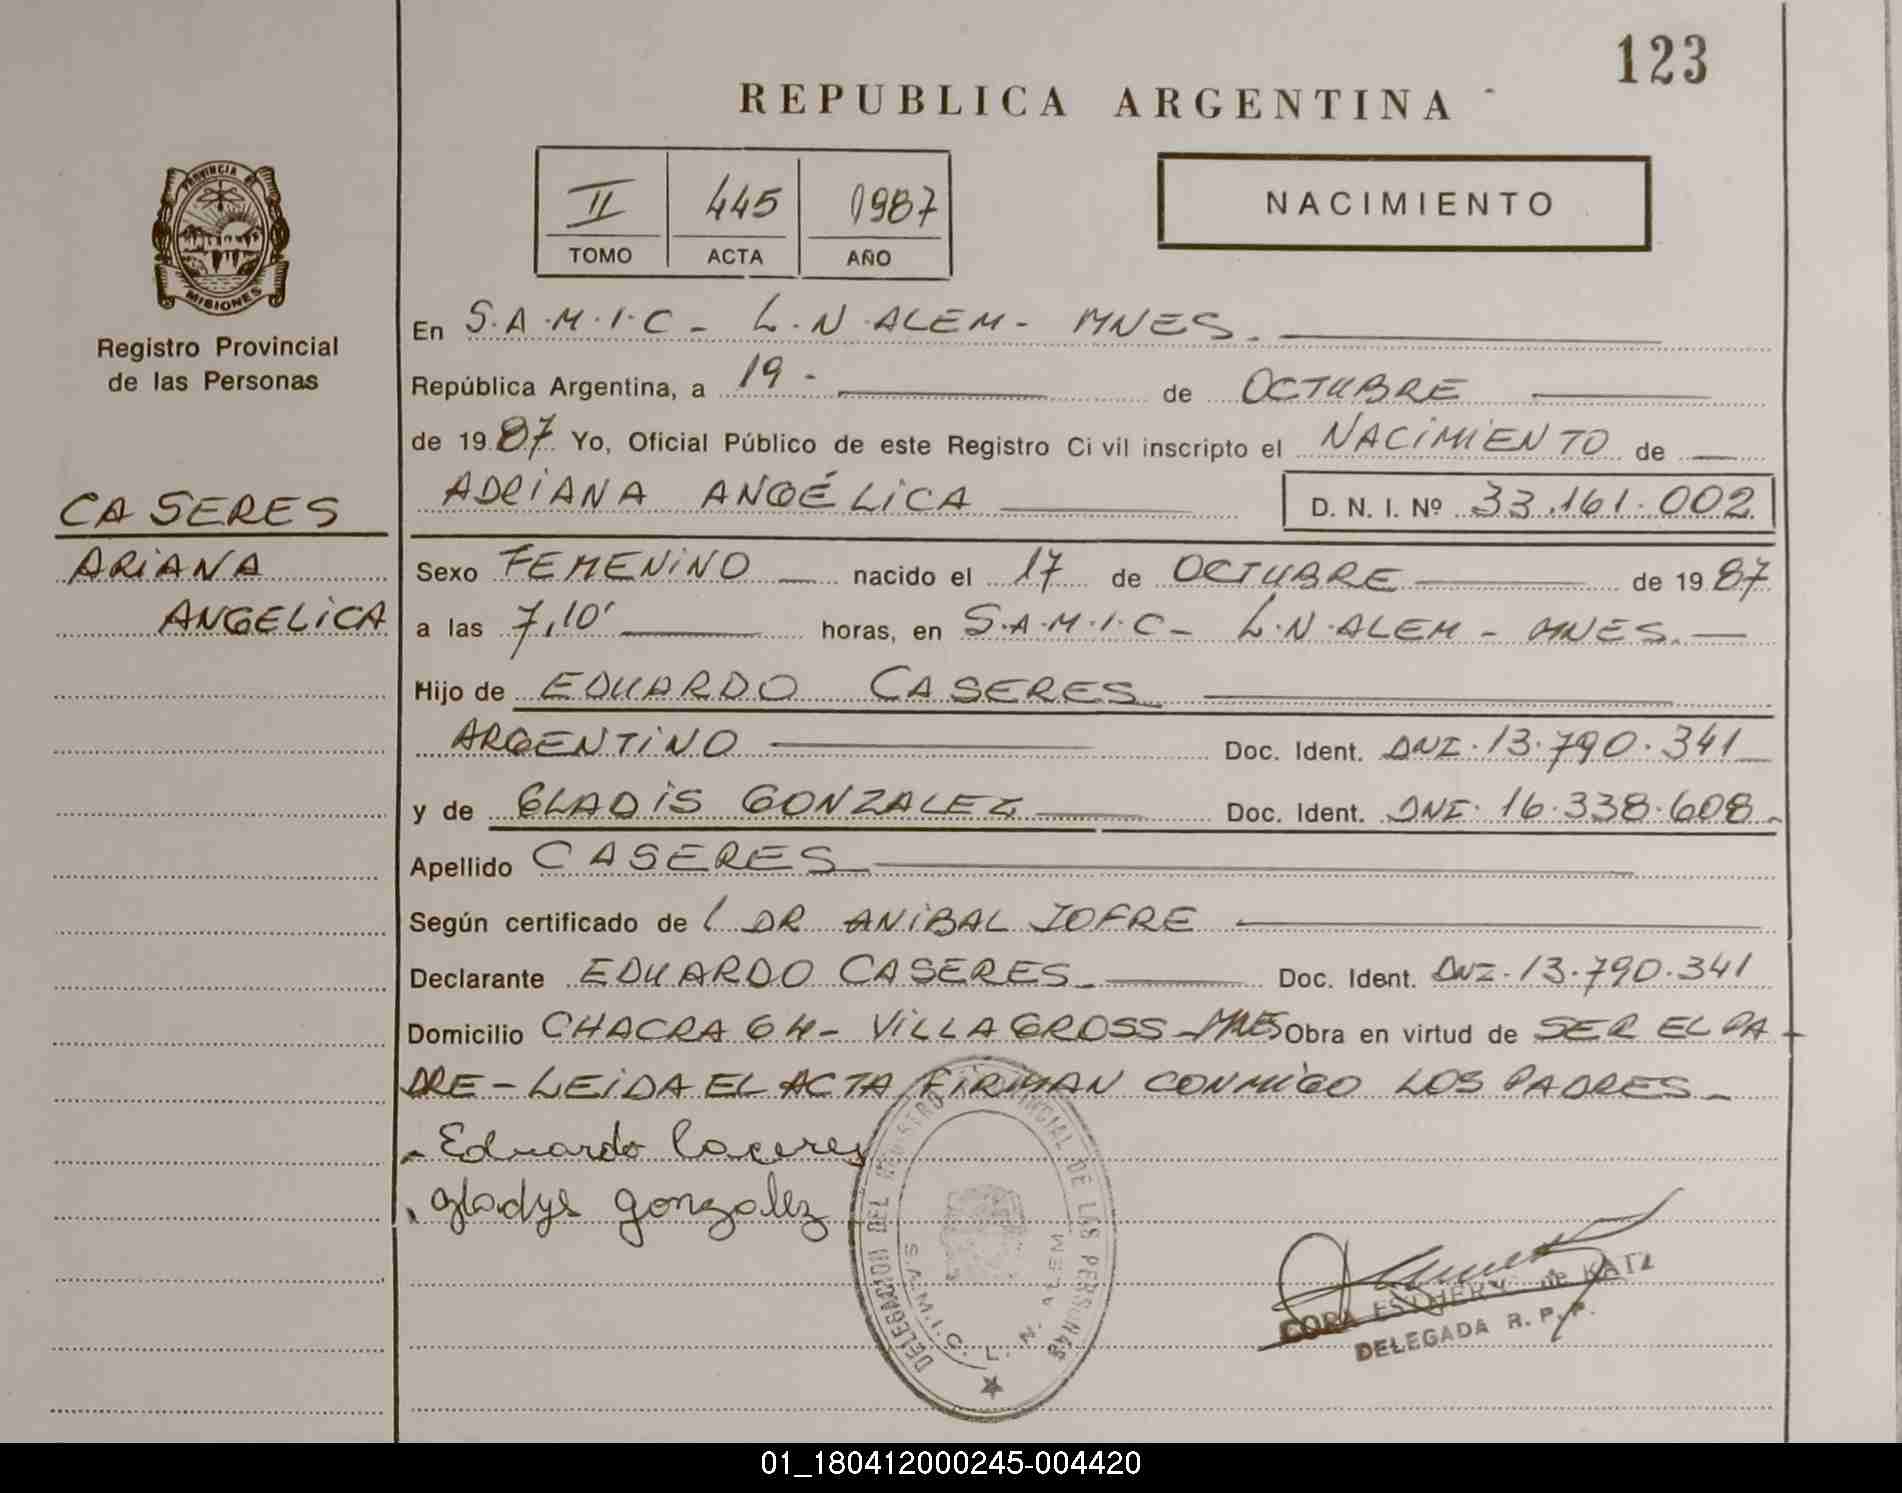 123
REPUBLICA ARGENTINA
II 445 1987
TOMO ACTA AÑO
NACIMIENTO
PROVINCIA DE
MISIONES
Registro Provincial
de las Personas
CASERES
ARIANA
ANGELICA
En S.A.M.I.C - L.N.ALEM - MNES.
República Argentina, a 19 - de OCTUBRE
de 1987 Yo, Oficial Público de este Registro Civil inscripto el NACIMIENTO de
ADRIANA ANGÉLICA D. N. I. Nº 33.161.002
Sexo FEMENINO nacido el 17 de OCTUBRE de 1987
a las 7,10' horas, en S.A.M.I.C - L.N.ALEM - MNES.
Hijo de EDUARDO CASERES
ARGENTINO Doc. Ident. DNI. 13.790.341
y de GLADIS GONZALEZ Doc. Ident. DNI. 16.338.608
Apellido CASERES
Según certificado de l DR ANIBAL JOFRE
Declarante EDUARDO CASERES Doc. Ident. DNI. 13.790.341
Domicilio CHACRA 64 - VILLA GROSS - MNES Obra en virtud de SER EL PA
DRE - LEIDA EL ACTA FIRMAN CONMIGO LOS PADRES
Eduardo Caceres
gladys gonzalez
DELEGACION DEL REGISTRO PROVINCIAL DE LAS PERSONAS
S.A.M.I.C. L. N. ALEM
CORA ESTHER V. de KATZ
DELEGADA R. P. P.
01_180412000245-004420